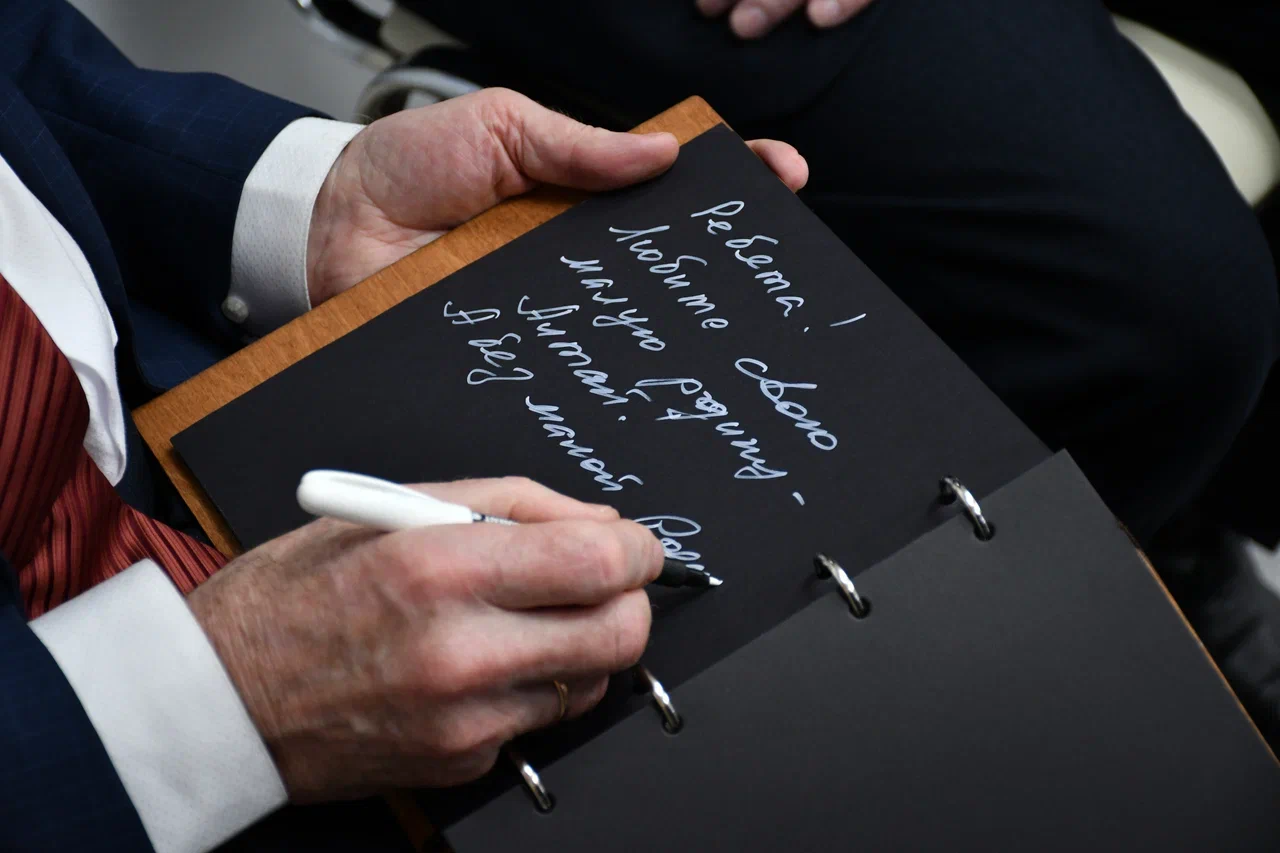 Ребята!
Любите свою
малую Родину -
Алтай.
А без малой Роди